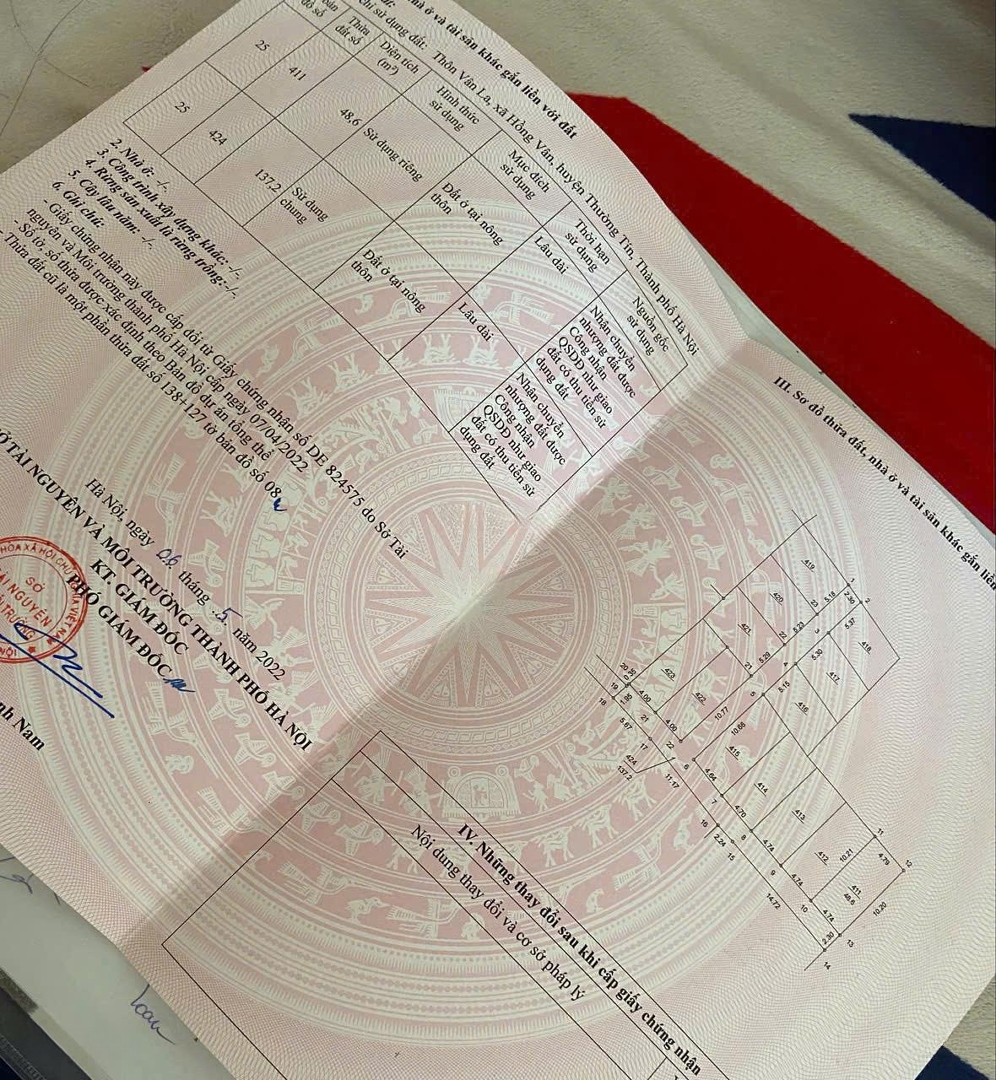 nhà ở và tài sản khác gắn liền với đất
chỉ sử dụng đất: Thôn Vân La, xã Hồng Vân, huyện Thường Tín, Thành phố Hà Nội
đồ số
Thửa đất số
Diện tích (m²)
Hình thức sử dụng
Mục đích sử dụng
Thời hạn sử dụng
Nguồn gốc sử dụng
25
411
48,6
Sử dụng riêng
Đất ở tại nông thôn
Lâu dài
Nhận chuyển nhượng đất được Công nhận QSDĐ như giao đất có thu tiền sử dụng đất
25
424
137,2
Sử dụng chung
Đất ở tại nông thôn
Lâu dài
Nhận chuyển nhượng đất được Công nhận QSDĐ như giao đất có thu tiền sử dụng đất
2. Nhà ở: -/-.
3. Công trình xây dựng khác: -/-.
4. Rừng sản xuất là rừng trồng: -/-.
5. Cây lâu năm: -/-.
6. Ghi chú:
- Giấy chứng nhận này được cấp đổi từ Giấy chứng nhận số DE 824575 do Sở Tài
nguyên và Môi trường thành phố Hà Nội cấp ngày 07/04/2022
- Số tờ, số thửa được xác định theo Bản đồ dự án tổng thể
Thửa đất cũ là một phần thửa đất số 138+127 tờ bản đồ số 08
Hà Nội, ngày 06 tháng 5 năm 2022
TÀI NGUYÊN VÀ MÔI TRƯỜNG THÀNH PHỐ HÀ NỘI
KT. GIÁM ĐỐC
PHÓ GIÁM ĐỐC
HÒA XÃ HỘI CHỦ NGHĨA VIỆT NAM
SỞ
TÀI NGUYÊN
Nam
III. Sơ đồ thửa đất, nhà ở và tài sản khác gắn liền
419
1
2.30
2
5.18
23
420
5.37
3
418
5.23
22
421
5.30
4
417
5.29
21
5.15
5
416
423
422
10.77
10.66
415
414
413
412
10.21
411
48.6
11
4.79
12
10.20
20
19
18
4.00
21
4.00
22
5.67
17
424
137.2
11.17
6
4.64
7
4.70
8
4.74
9
4.74
10
4.74
13
16
2.24
15
14.72
2.30
14
IV. Những thay đổi sau khi cấp giấy chứng nhận
Nội dung thay đổi và cơ sở pháp lý
loan